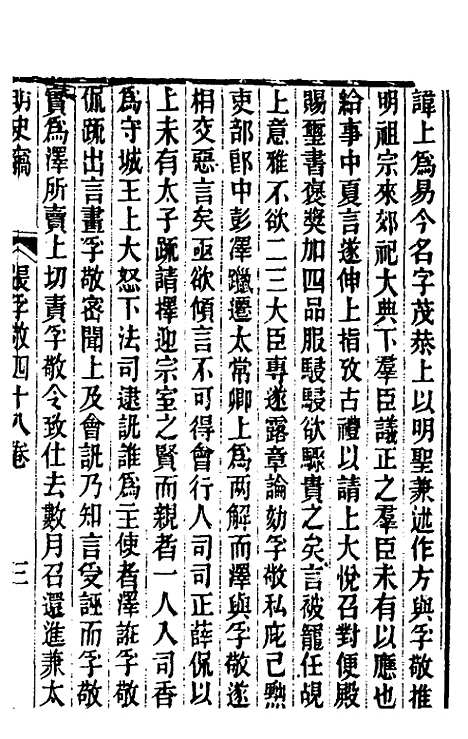 諱上為易今名字茂恭上以明聖兼述作方與孚敬推
明祖宗來郊祀大典下羣臣議正之羣臣未有以應也
給事中夏言遂伸上指攷古禮以請上大悅召對便殿
賜璽書褒奬加四品服駸駸欲驟貴之矣言被寵任覘
上意雅不欲二三大臣專遂露章論劾孚敬私庇己㷱
吏部郎中彭澤躐遷太常卿上為兩解而澤與孚敬遂
相交惡言矣亟欲傾言不可得會行人司司正薛侃以
上未有太子疏請擇迎宗室之賢而親者一人入司香
為守城王上大怒下法司逮訊誰為主使者澤誑孚敬
侃疏出言畫孚敬密聞上及會訊乃知言受誣而孚敬
實為澤所賣上切責孚敬令致仕去數月召還進兼太
明史竊 張孚敬四十八卷 三